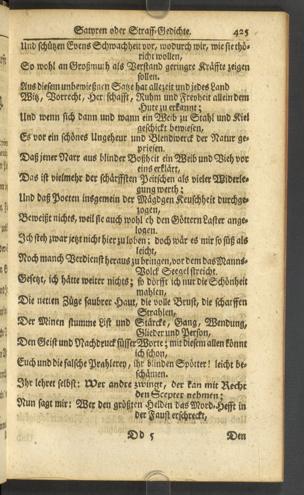 Satyren oder Straff-Gedichte. 425
Und schützen Evens Schwachheit vor, wodurch wir, wie sie thö-
richt wollen,
So wohl an Großmuth als Verstand geringre Kräffte zeigen
sollen.
Aus diesem unbewießnen Satze hat allezeit und jedes Land
Witz, Vorrecht, Herrschafft, Ruhm und Freyheit allein dem
Hute zu erkannt;
Und wenn sich dann und wann ein Weib zu Stahl und Kiel
geschickt bewiesen,
Es vor ein schönes Ungeheur und Blendwerck der Natur ge-
priesen.
Daß jener Narr aus blinder Boßheit ein Weib und Vieh vor
eins erklärt,
Das ist vielmehr der schärffsten Peitschen als vieler Widerle-
gung werth;
Und daß Poeten insgemein der Mägdgen Keuschheit durchge-
zogen,
Beweißt nichts, weil sie auch wohl eh den Göttern Laster ange-
logen.
Ich steh zwar jetzt nicht hier zu loben; doch wär es mir so süß als
leicht,
Noch manch Verdienst heraus zu bringen, vor dem das Manns-
Volck Seegel streicht.
Gesetzt, ich hätte weiter nichts; so dörfft ich nur die Schönheit
mahlen,
Die netten Züge saubrer Haut, die volle Brust, die scharffen
Strahlen,
Der Minen stumme List und Stärcke, Gang, Wendung,
Glieder und Person,
Den Geist und Nachdruck süsser Worte; mit diesem allen könnt
ich schon,
Euch und die falsche Prahlerey, ihr blinden Spötter! leicht be-
schämen.
Ihr lehret selbst: Wer andre zwinge, der kan mit Recht
den Scepter nehmen;
Nun sagt mir: Wer den größten Helden das Mord-Hefft in
der Faust erschreckt,
Dd 5 Den